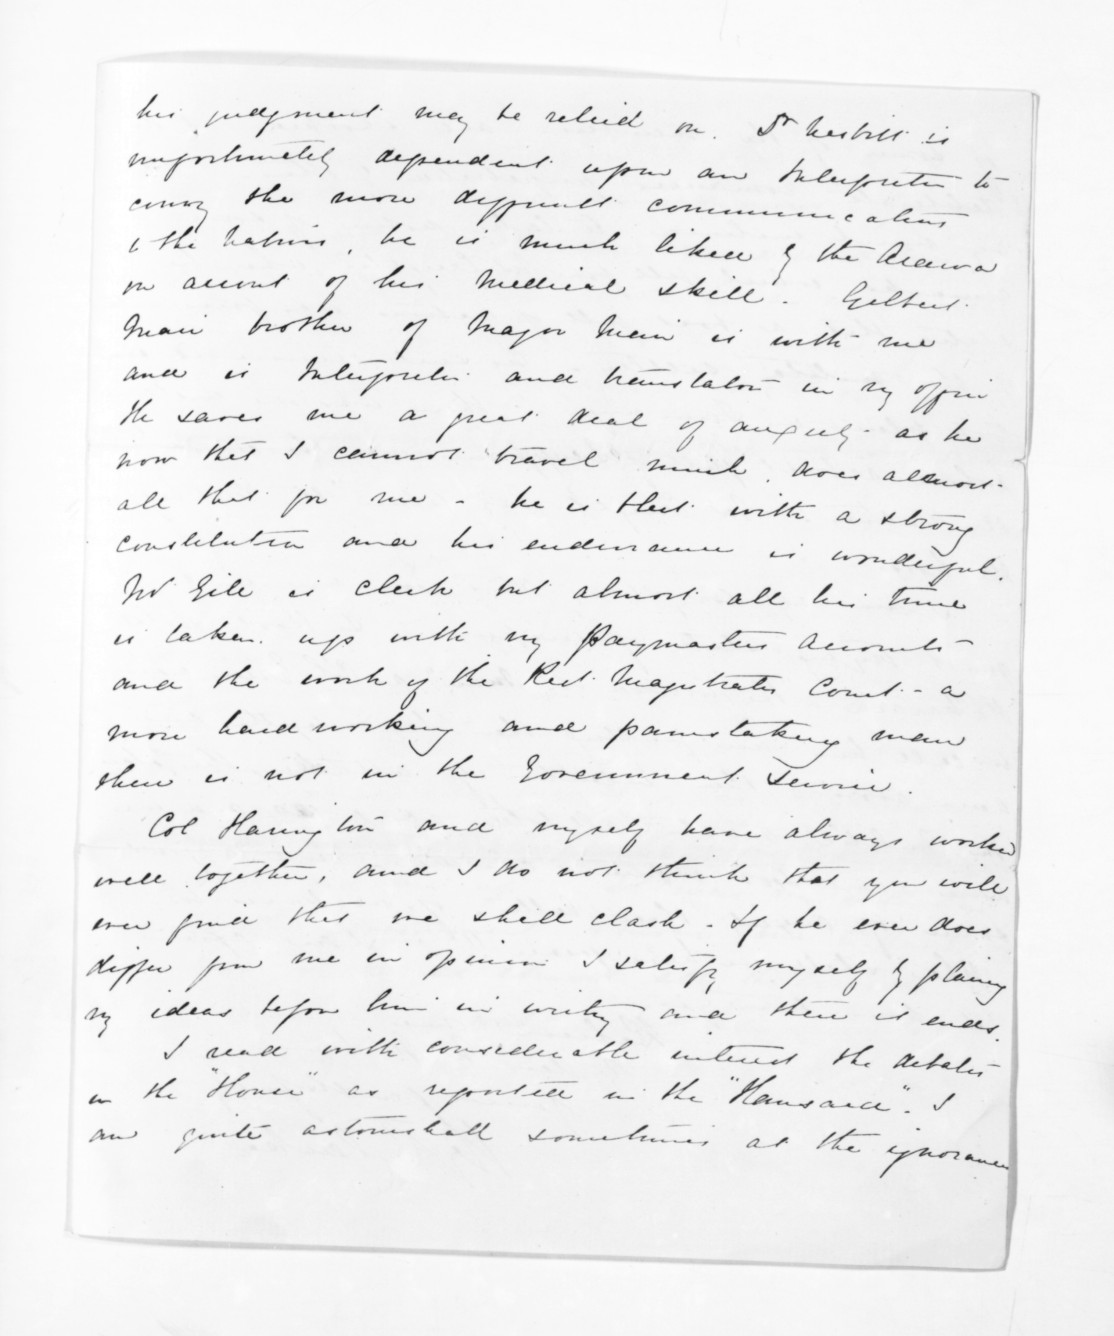 his judgment may be relied on. Dr Nesbitt is
unfortunately dependent upon an Interpreter to
convey the more difficult communications
to the Natives, he is much liked by the Arawa
on account of his medical skill. Gilbert
Mair brother of Major Mair is with me
and is Interpreter and translator in my office
He saves me a great deal of anxiety as he
now that I cannot travel much, does almost
all that for me - he is that with a strong
constitution and his endurance is wonderful.
Mr Gill is clerk but almost all his time
is taken up with my Paymasters Accounts
and the work of the Resdt Magistrates Court - a
more hardworking and painstaking man
there is not in the Government Service.
Col Harington and myself have always worked
well together, and I do not think that you will
ever find that we shall clash. If he ever does
differ from me in opinion I satisfy myself by placing
my ideas before him in writing and there it ends.
I read with considerable interest the debates
in the "House" as reported in the "Hansard". I
am quite astonished sometimes at the ignorance